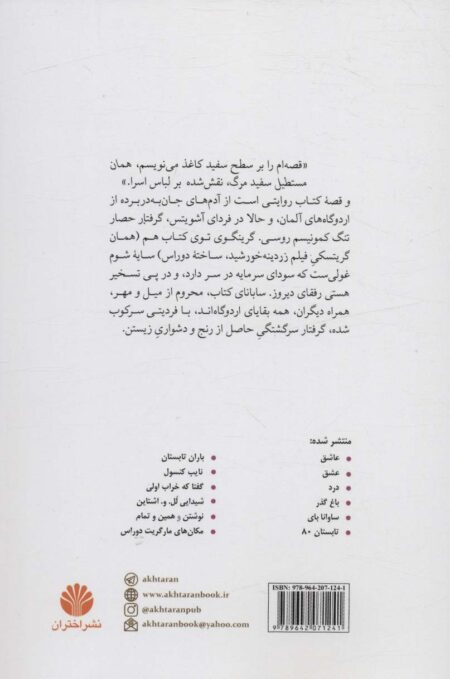 «قصه‌ام را بر سطح سفید کاغذ می‌نویسم، همان
مستطیل سفید مرگ، نقش‌شده بر لباس اسرا.»
و قصهٔ کتاب روایتی است از آدم‌های جان‌به‌دربرده از
اردوگاه‌های آلمان، و حالا در فردای آشویتس، گرفتار حصار
تنگ کمونیسم روسی. گرینگوی توی کتاب هم (همان
گرینسکیِ فیلم زردینه‌خورشید، ساختهٔ دوراس) سایهٔ شوم
غولی‌ست که سودای سرمایه در سر دارد، و در پی تسخیر
هستی رفقای دیروز. سابانای کتاب، محروم از میل و مهر،
همراه دیگران، همه بقایای اردوگاه‌اند، با فردیتی سرکوب
شده، گرفتار سرگشتگیِ حاصل از رنج و دشواریِ زیستن.
منتشر شده:
عاشق
عشق
درد
باغ گذر
ساوانا بای
تابستان ۸۰
باران تابستان
نایب کنسول
گفتا که خراب اولی
شیدایی لُل. و. اشتاین
نوشتن و همین و تمام
مکان‌های مارگریت دوراس
akhtaran
www.akhtaranbook.ir
@akhtaranpub
akhtaranbook@yahoo.com
نشر اختران
ISBN: 978-964-207-124-1
9 789642 071241